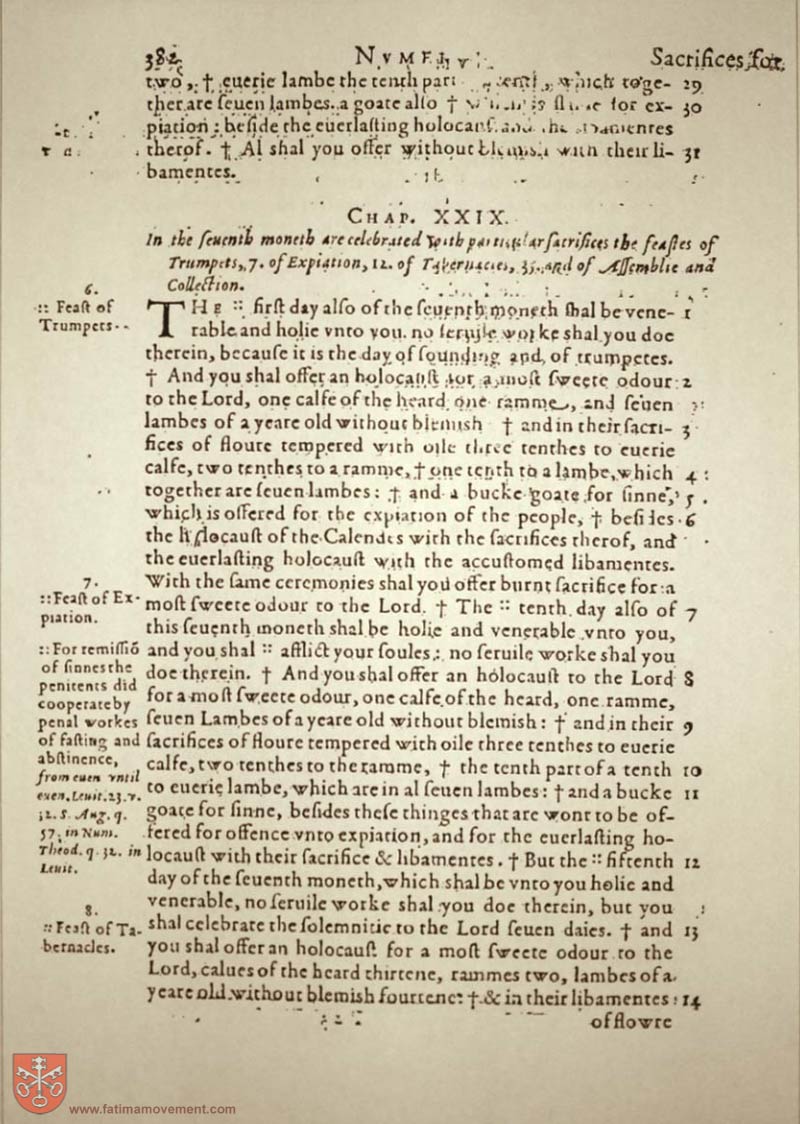 382 Sacrifices for
two, † euerie lambe the tenth part which toge- 29
ther are ſeuen lambes. a goate alſo † for ex- 30
piation: beſide the euerlaſting holocauſt and the
therof. † Al shal you offer without blemish with their li- 31
bamentes.
CHAP. XXIX.
In the ſeuenth moneth are celebrated with particular ſacrifices the feaſtes of
Trumpets, 7. of Expiation, 12. of Tabernacles, 35. and of Aſſemblie and
Collection.
THE :: firſt day alſo of the ſeuenth moneth ſhal be vene- 1
rable and holie vnto you. no ſeruile worke shal you doe
therein, becauſe it is the day of ſounding and of trumpetes.
† And you shal offer an holocauſt for a moſt ſweete odour 2
to the Lord, one calfe of the heard, one ramme, and ſeuen
lambes of a yeare old without blemish † and in their ſacri- 3
fices of floure tempered with oile three tenthes to euerie
calfe, two tenthes to a ramme, † one tenth to a lambe, which 4
together are ſeuen lambes: † and a bucke goate for ſinne, 5
which is offered for the expiation of the people, † beſides 6
the holocauſt of the Calendes with the ſacrifices therof, and
the euerlaſting holocauſt with the accuſtomed libamentes.
With the ſame ceremonies shal you offer burnt ſacrifice for a
moſt ſweete odour to the Lord. † The :: tenth day alſo of 7
this ſeuenth moneth shal be holie and venerable vnto you,
and you shal :: afflict your ſoules: no ſeruile worke shal you
doe therein. † And you shal offer an holocauſt to the Lord 8
for a moſt ſweete odour, one calfe of the heard, one ramme,
ſeuen Lambes of a yeare old without blemish: † and in their 9
ſacrifices of floure tempered with oile three tenthes to euerie
calfe, two tenthes to the ramme, † the tenth part of a tenth 10
to euerie lambe, which are in al ſeuen lambes: † and a bucke 11
goate for ſinne, beſides theſe thinges that are wont to be of-
fered for offence vnto expiation, and for the euerlaſting ho-
locauſt with their ſacrifice & libamentes. † But the :: fiftenth 12
day of the ſeuenth moneth, which shal be vnto you holie and
venerable, no ſeruile worke shal you doe therein, but you
shal celebrate the ſolemnitie to the Lord ſeuen daies. † and 13
you shal offer an holocauſt for a moſt ſweete odour to the
Lord, calues of the heard thirtene, rammes two, lambes of a
yeare old without blemish fourtene: † & in their libamentes 14
of flowre
6.
:: Feaſt of
Trumpets.
7.
:: Feaſt of Ex-
piation.
:: For remiſſiõ
of ſinnes the
penitents did
cooperate by
penal workes
of faſting and
abſtinence,
from euen vntil
euen. Leuit. 23. v.
32. S. Aug. q.
57. in Num.
Theod. q. 32. in
Leuit.
8.
:: Feaſt of Ta-
bernacles.
www.fatimamovement.com